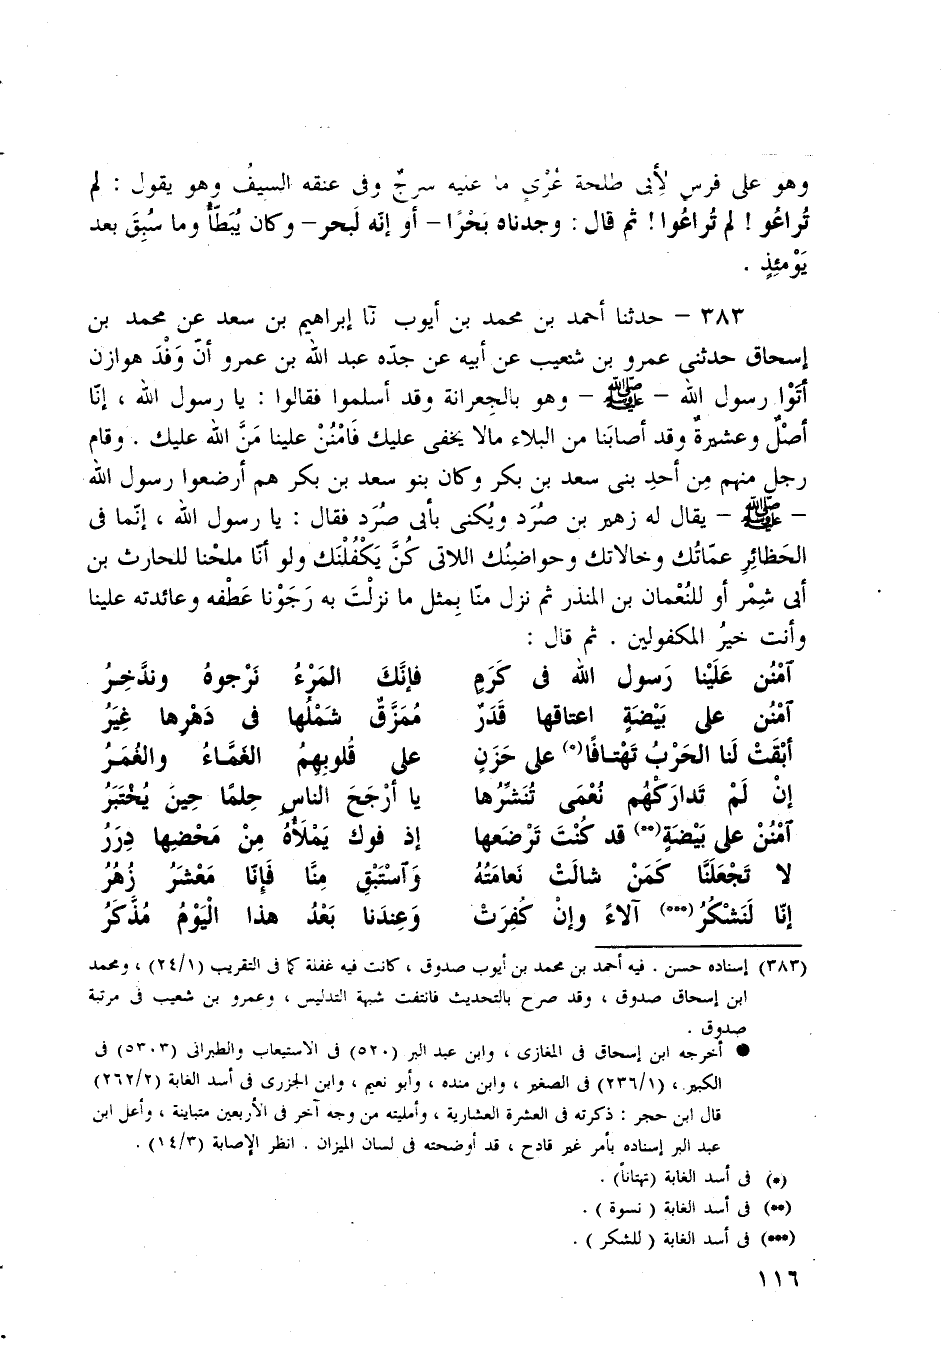 وهو على فرس لأبى طلحة عُرْي ما عليه سرجٌ وفى عنقه السيفُ وهو يقول : لم
تُراعُو ! لم تُراعُوا ! ثم قال : وجدناه بَحْرًا – أو إنّه لَبحر – وكان يُبَطّأُ وما سُبِقَ بعد
يَوْمئِذٍ .
٣٨٣ – حدثنا أحمد بن محمد بن أيوب نَا إبراهيم بن سعد عن محمد بن
إسحاق حدثنى عمرو بن شعيب عن أبيه عن جدّه عبد الله بن عمرو أنّ وَفْدَ هوازن
أَتَوْا رسول الله – ﷺ – وهو بالجِعرانة وقد أسلموا فقالوا : يا رسول الله ، إنّا
أصْلٌ وعشيرةٌ وقد أصابَنا من البلاء مالا يخفى عليك فَامْنُنْ علينا مَنَّ الله عليك . وقام
رجل منهم مِن أحدِ بنى سعد بن بكر وكان بنو سعد بن بكر هم أرضعوا رسول الله
– ﷺ – يقال له زهير بن صُرَد ويُكنى بأبى صُرَد فقال : يا رسول الله ، إنّما فى
الحَظائِرِ عمّاتُك وخالاتك وحواضِنُك اللاتى كُنَّ يَكْفُلْنَك ولو أنّا ملحْنا للحارث بن
أبى شِمْر أو للنُعْمان بن المنذر ثم نزل منّا بِمثل ما نزلْتَ به رَجَوْنا عَطْفه وعائدته علينا
وأنت خيرُ المكفولين . ثم قال :
آمْنُن عَلَيْنا رَسول الله فى كَرَمٍ فإنَّكَ المَرْءُ نَرْجوهُ وندَّخِـرُ
آمْنُن على بَيْضَةٍ اعتاقها قَدَرٌ مُمَزَّقٌ شَمْلُها فى دَهْرِها غِيَرُ
أبْقَتْ لَنا الحَرْبُ تَهْتـافًا(*) على حَزَنٍ على قُلوبِهِمُ الغَمَّاءُ والغُمَـرُ
إنْ لَمْ تَدارَكْهُم نُعْمَى تُنَشِّرُها يا أرْجَحَ الناسِ حِلمًا حِينَ يُخْتَبَرُ
آمْنُنْ على بَيْضَةٍ(**) قد كُنْتَ تَرْضَعها إذ فوك يَمْلَأهُ مِنْ مَحْضِها دِرَرُ
لا تَجْعَلَنَّا كَمَنْ شالَتْ نَعامَتُهُ وَٱسْتَبْقِ مِنَّا فَإِنّا مَعْشَرُ زُهُرُ
إنّا لَنَشْكُرُ(***) آلاءً وإنْ كُفِرَتْ وَعِندَنا بَعْدُ هذا الْيَوْمُ مُدَّكَرُ
(٣٨٣) إسناده حسن . فيه أحمد بن محمد بن أيوب صدوق ، كانت فيه غفلة كما فى التقريب (٢٤/١) ، ومحمد
ابن إسحاق صدوق ، وقد صرح بالتحديث فانتفت شبهة التدليس ، وعمرو بن شعيب فى مرتبة
صدوق .
● أخرجه ابن إسحاق فى المغازى ، وابن عبد البر (٥٢٠) فى الاستيعاب والطبرانى (٥٣٠٣) فى
الكبير ، (٢٣٦/١) فى الصغير ، وابن منده ، وأبو نعيم ، وابن الجزرى فى أسد الغابة (٢٦٢/٢)
قال ابن حجر : ذكرته فى العشرة العشارية ، وأمليته من وجه آخر فى الأربعين متباينة ، وأعل ابن
عبد البر إسناده بأمر غير قادح ، قد أوضحته فى لسان الميزان . انظر الإصابة (١٤/٣) .
(*) فى أسد الغابة (تهتاناً) .
(**) فى أسد الغابة ( نسوة ) .
(***) فى أسد الغابة ( للشكر ) .
١١٦